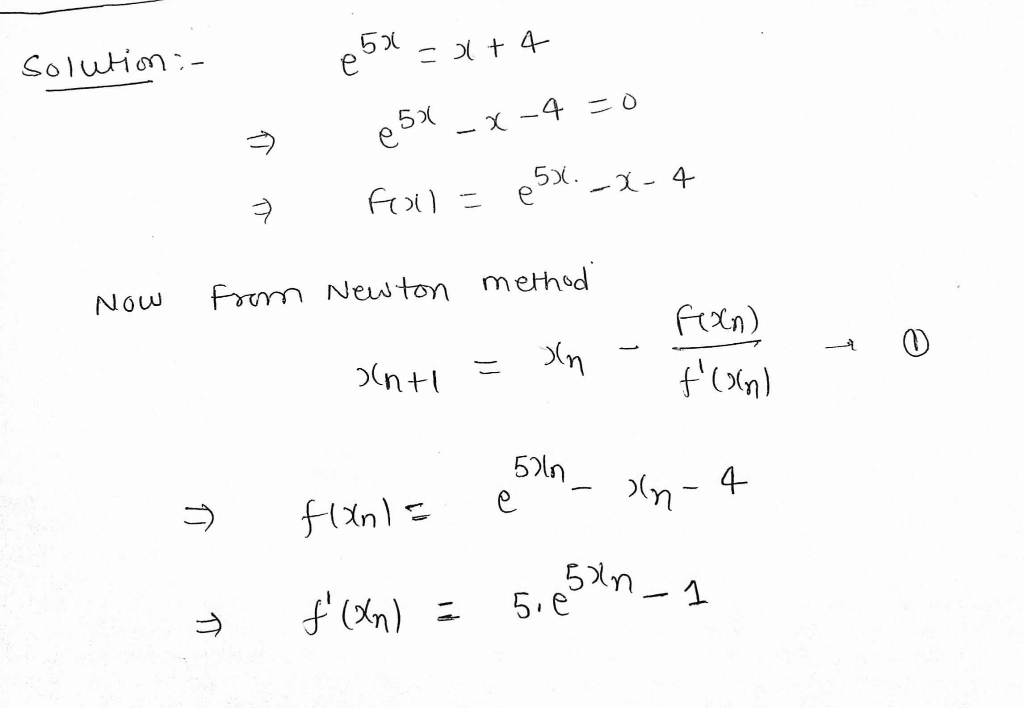 Solution :- e^{5x} = x + 4
⇒ e^{5x} - x - 4 = 0
⇒ f(x) = e^{5x}. - x - 4
Now From Newton method
x_{n+1} = x_n - f(x_n) / f'(x_n) → ①
⇒ f(x_n) = e^{5x_n} - x_n - 4
⇒ f'(x_n) = 5.e^{5x_n} - 1